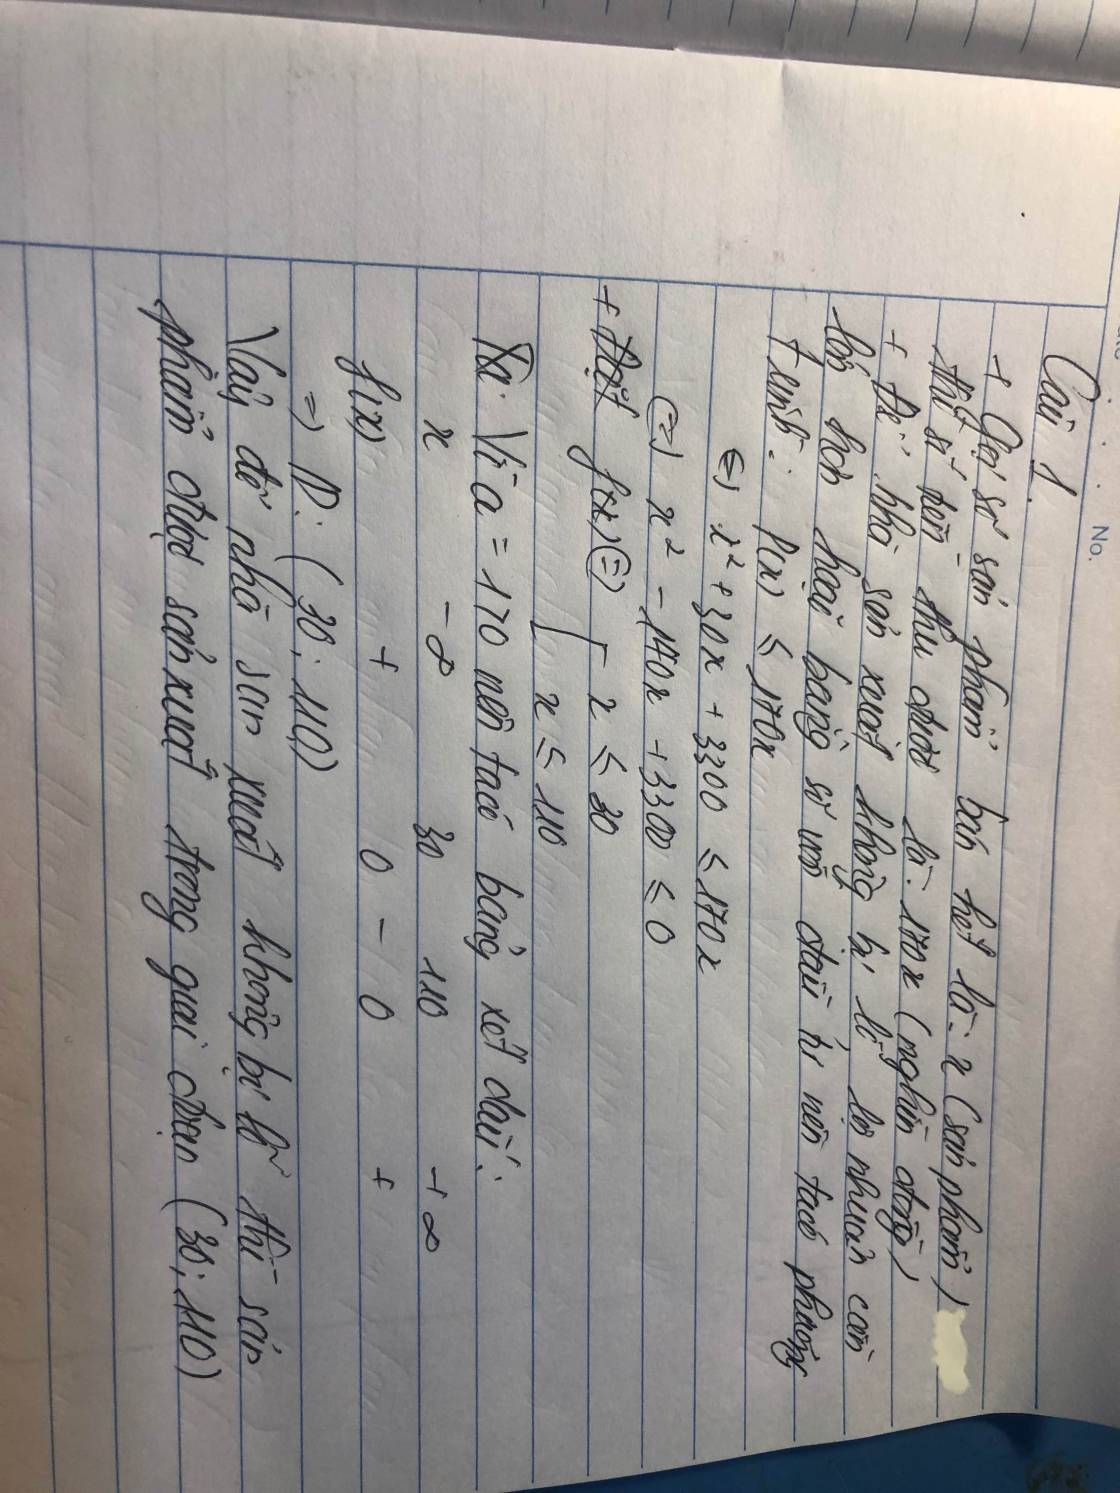 No.
Câu 1.
+ Gọi số sản phẩm bán hết là: x (sản phẩm)
thì số tiền thu được là: 170x (nghìn đồng)
+ Để nhà sản xuất không bị lỗ lợi nhuận cần
lớn hơn hoặc bằng số vốn đầu tư nên ta có phương
trình: P(x) ≤ 170x
(=) x² + 30x + 3300 ≤ 170x
(=) x² - 140x + 3300 ≤ 0
+ Đặt f(x) (=) [ x ≤ 30
x ≤ 110
Vì a = 170 nên ta có bảng xét dấu:
x -∞ 30 110 +∞
f(x) + 0 - 0 +
=) D: (30; 110)
Vậy để nhà sản xuất không bị lỗ thì sản
phẩm được sản xuất trong giai đoạn (30; 110)